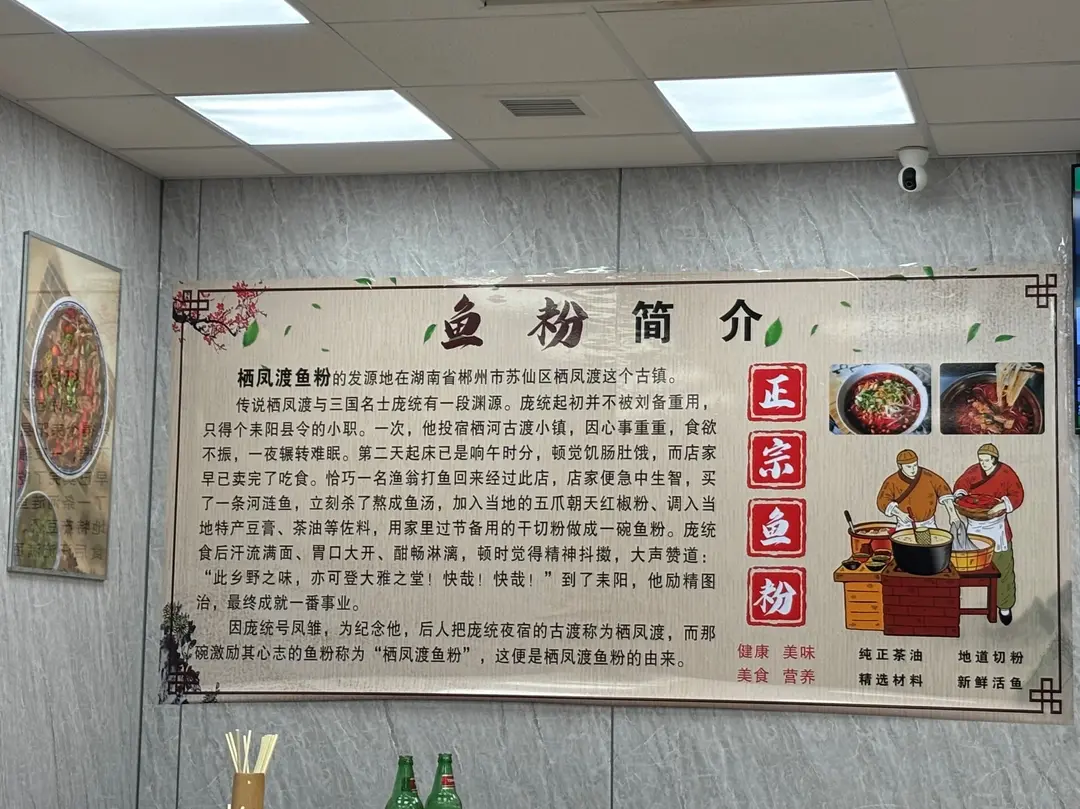 鱼粉简介
栖凤渡鱼粉的发源地在湖南省郴州市苏仙区栖凤渡这个古镇。
传说栖凤渡与三国名士庞统有一段渊源。庞统起初并不被刘备重用，
只得个耒阳县令的小职。一次，他投宿栖河古渡小镇，因心事重重，食欲
不振，一夜辗转难眠。第二天起床已是响午时分，顿觉饥肠肚饿，而店家
早已卖完了吃食。恰巧一名渔翁打鱼回来经过此店，店家便急中生智，买
了一条河涟鱼，立刻杀了熬成鱼汤，加入当地的五爪朝天红椒粉、调入当
地特产豆膏、茶油等佐料，用家里过节备用的干切粉做成一碗鱼粉。庞统
食后汗流满面、胃口大开、酣畅淋漓，顿时觉得精神抖擞，大声赞道：
“此乡野之味，亦可登大雅之堂！快哉！快哉！”到了耒阳，他励精图
治，最终成就一番事业。
因庞统号凤雏，为纪念他，后人把庞统夜宿的古渡称为栖凤渡，而那
碗激励其心志的鱼粉称为“栖凤渡鱼粉”，这便是栖凤渡鱼粉的由来。
正
宗
鱼
粉
健康 美味
美食 营养
纯正茶油 地道切粉
精选材料 新鲜活鱼